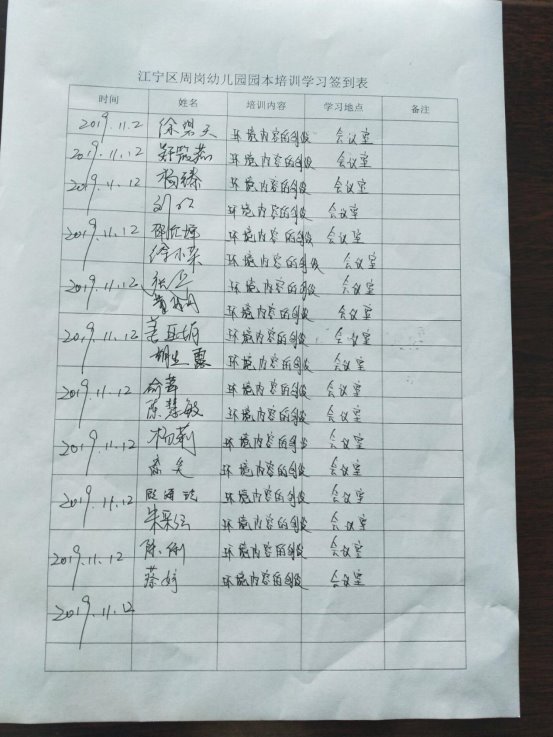 江宁区周岗幼儿园园本培训学习签到表
时间 姓名 培训内容 学习地点 备注
2019.11.2 徐碧天 环境内容的创设 会议室
2019.11.12 环境内容的创设 会议室
2019.11.12 杨臻 环境内容的创设 会议室
环境内容的创设 会议室
2019.11.12 环境内容的创设 会议室
徐小荣 环境内容的创设 会议室
2019.11.12 环境内容的创设 会议室
环境内容的创设 会议室
2019.11.12 环境内容的创设 会议室
环境内容的创设 会议室
2019.11.12 俞茸 环境内容的创设 会议室
陈慧敏 环境内容的创设 会议室
2019.11.12 杨莉 环境内容的创设 会议室
环境内容的创设 会议室
2019.11.12 环境内容的创设 会议室
环境内容的创设 会议室
2019.11.12 陈俐 环境内容的创设 会议室
蔡婷 环境内容的创设 会议室
2019.11.12